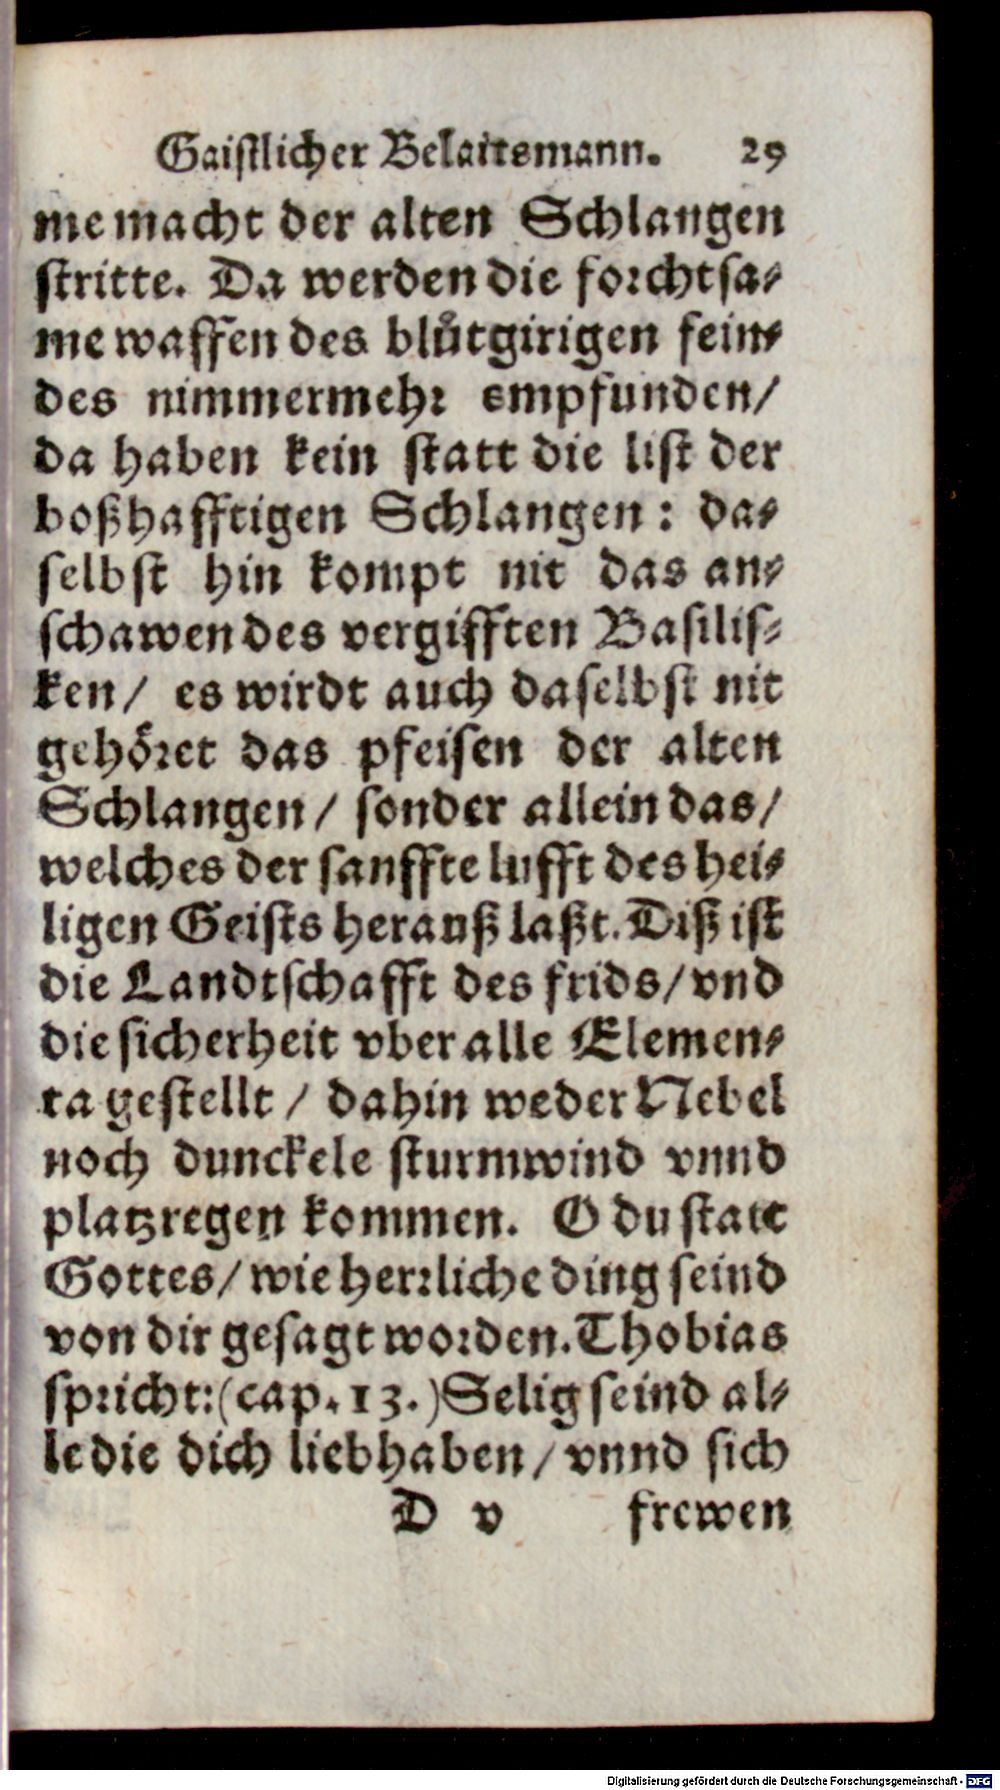 Gaistlicher Belaitsmann. 29
me macht der alten Schlangen
stritte. Da werden die forchtsa⸗
me waffen des blůtgirigen fein⸗
des nimmermehr empfunden/
da haben kein statt die list der
boßhafftigen Schlangen: da⸗
selbst hin kompt nit das an⸗
schawen des vergifften Basilis⸗
ken/ es wirdt auch daselbst nit
gehöret das pfeisen der alten
Schlangen/ sonder allein das/
welches der sanffte lufft des hei⸗
ligen Geists herauß laßt. Diß ist
die Landtschafft des frids/ vnd
die sicherheit vber alle Elemen⸗
ta gestellt/ dahin weder Nebel
noch dunckele sturmwind vnnd
platzregen kommen. O du statt
Gottes/ wie herrliche ding seind
von dir gesagt worden. Thobias
spricht: (cap. 13.) Selig seind al⸗
le die dich liebhaben/ vnnd sich
D v frewen
Digitalisierung gefördert durch die Deutsche Forschungsgemeinschaft - DFG